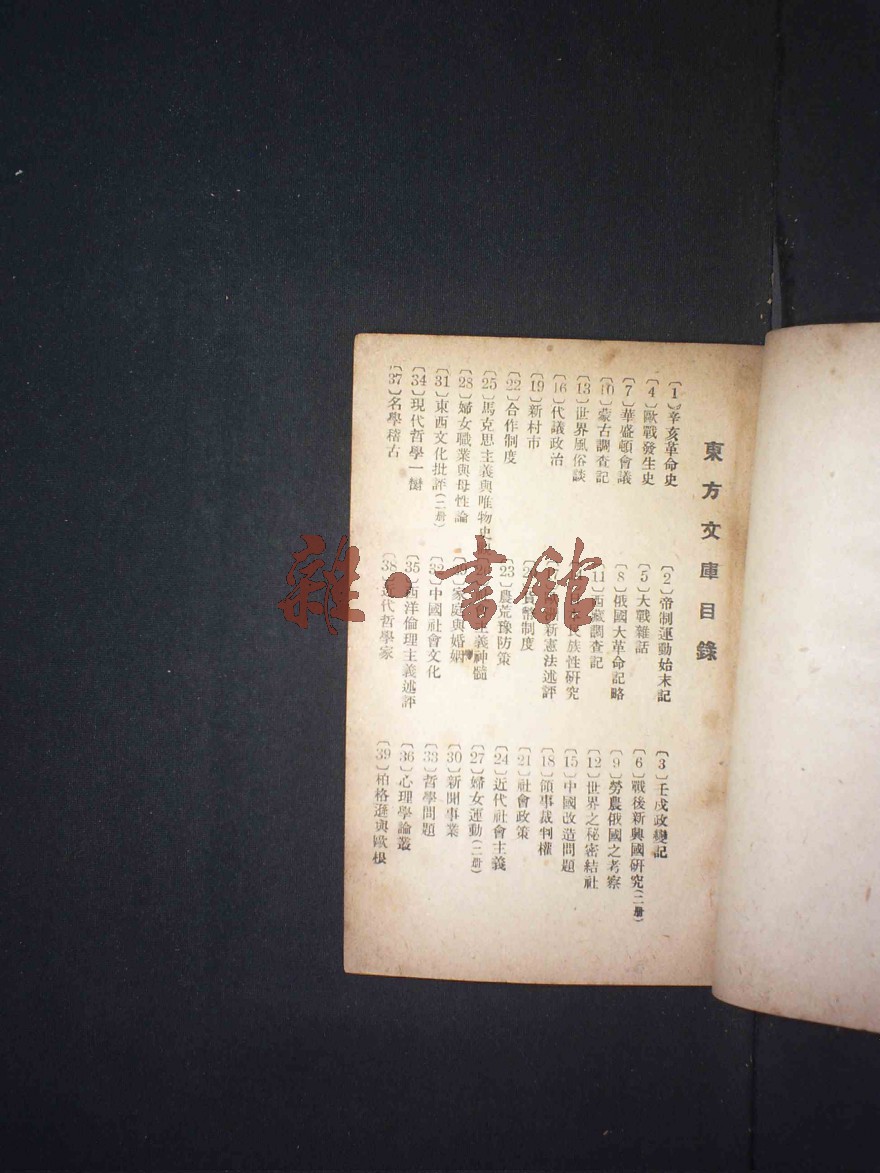 東方文庫目錄
〔1〕辛亥革命史
〔2〕帝制運動始末記
〔3〕壬戌政變記
〔4〕歐戰發生史
〔5〕大戰雜話
〔6〕戰後新興國研究(二册)
〔7〕華盛頓會議
〔8〕俄國大革命記略
〔9〕勞農俄國之考察
〔10〕蒙古調查記
〔11〕西藏調查記
〔12〕世界之秘密結社
〔13〕世界風俗談
族性研究
〔15〕中國改造問題
〔16〕代議政治
新憲法述評
〔18〕領事裁判權
〔19〕新村市
幣制度
〔21〕社會政策
〔22〕合作制度
〔23〕農荒豫防策
〔24〕近代社會主義
〔25〕馬克思主義與唯物史
主義神髓
〔27〕婦女運動(二册)
〔28〕婦女職業與母性論
家庭與婚姻
〔30〕新聞事業
〔31〕東西文化批評(二册)
中國社會文化
〔33〕哲學問題
〔34〕現代哲學一臠
〔35〕西洋倫理主義述評
〔36〕心理學論叢
〔37〕名學稽古
〔38〕近代哲學家
〔39〕柏格遜與歐根
雜·書館